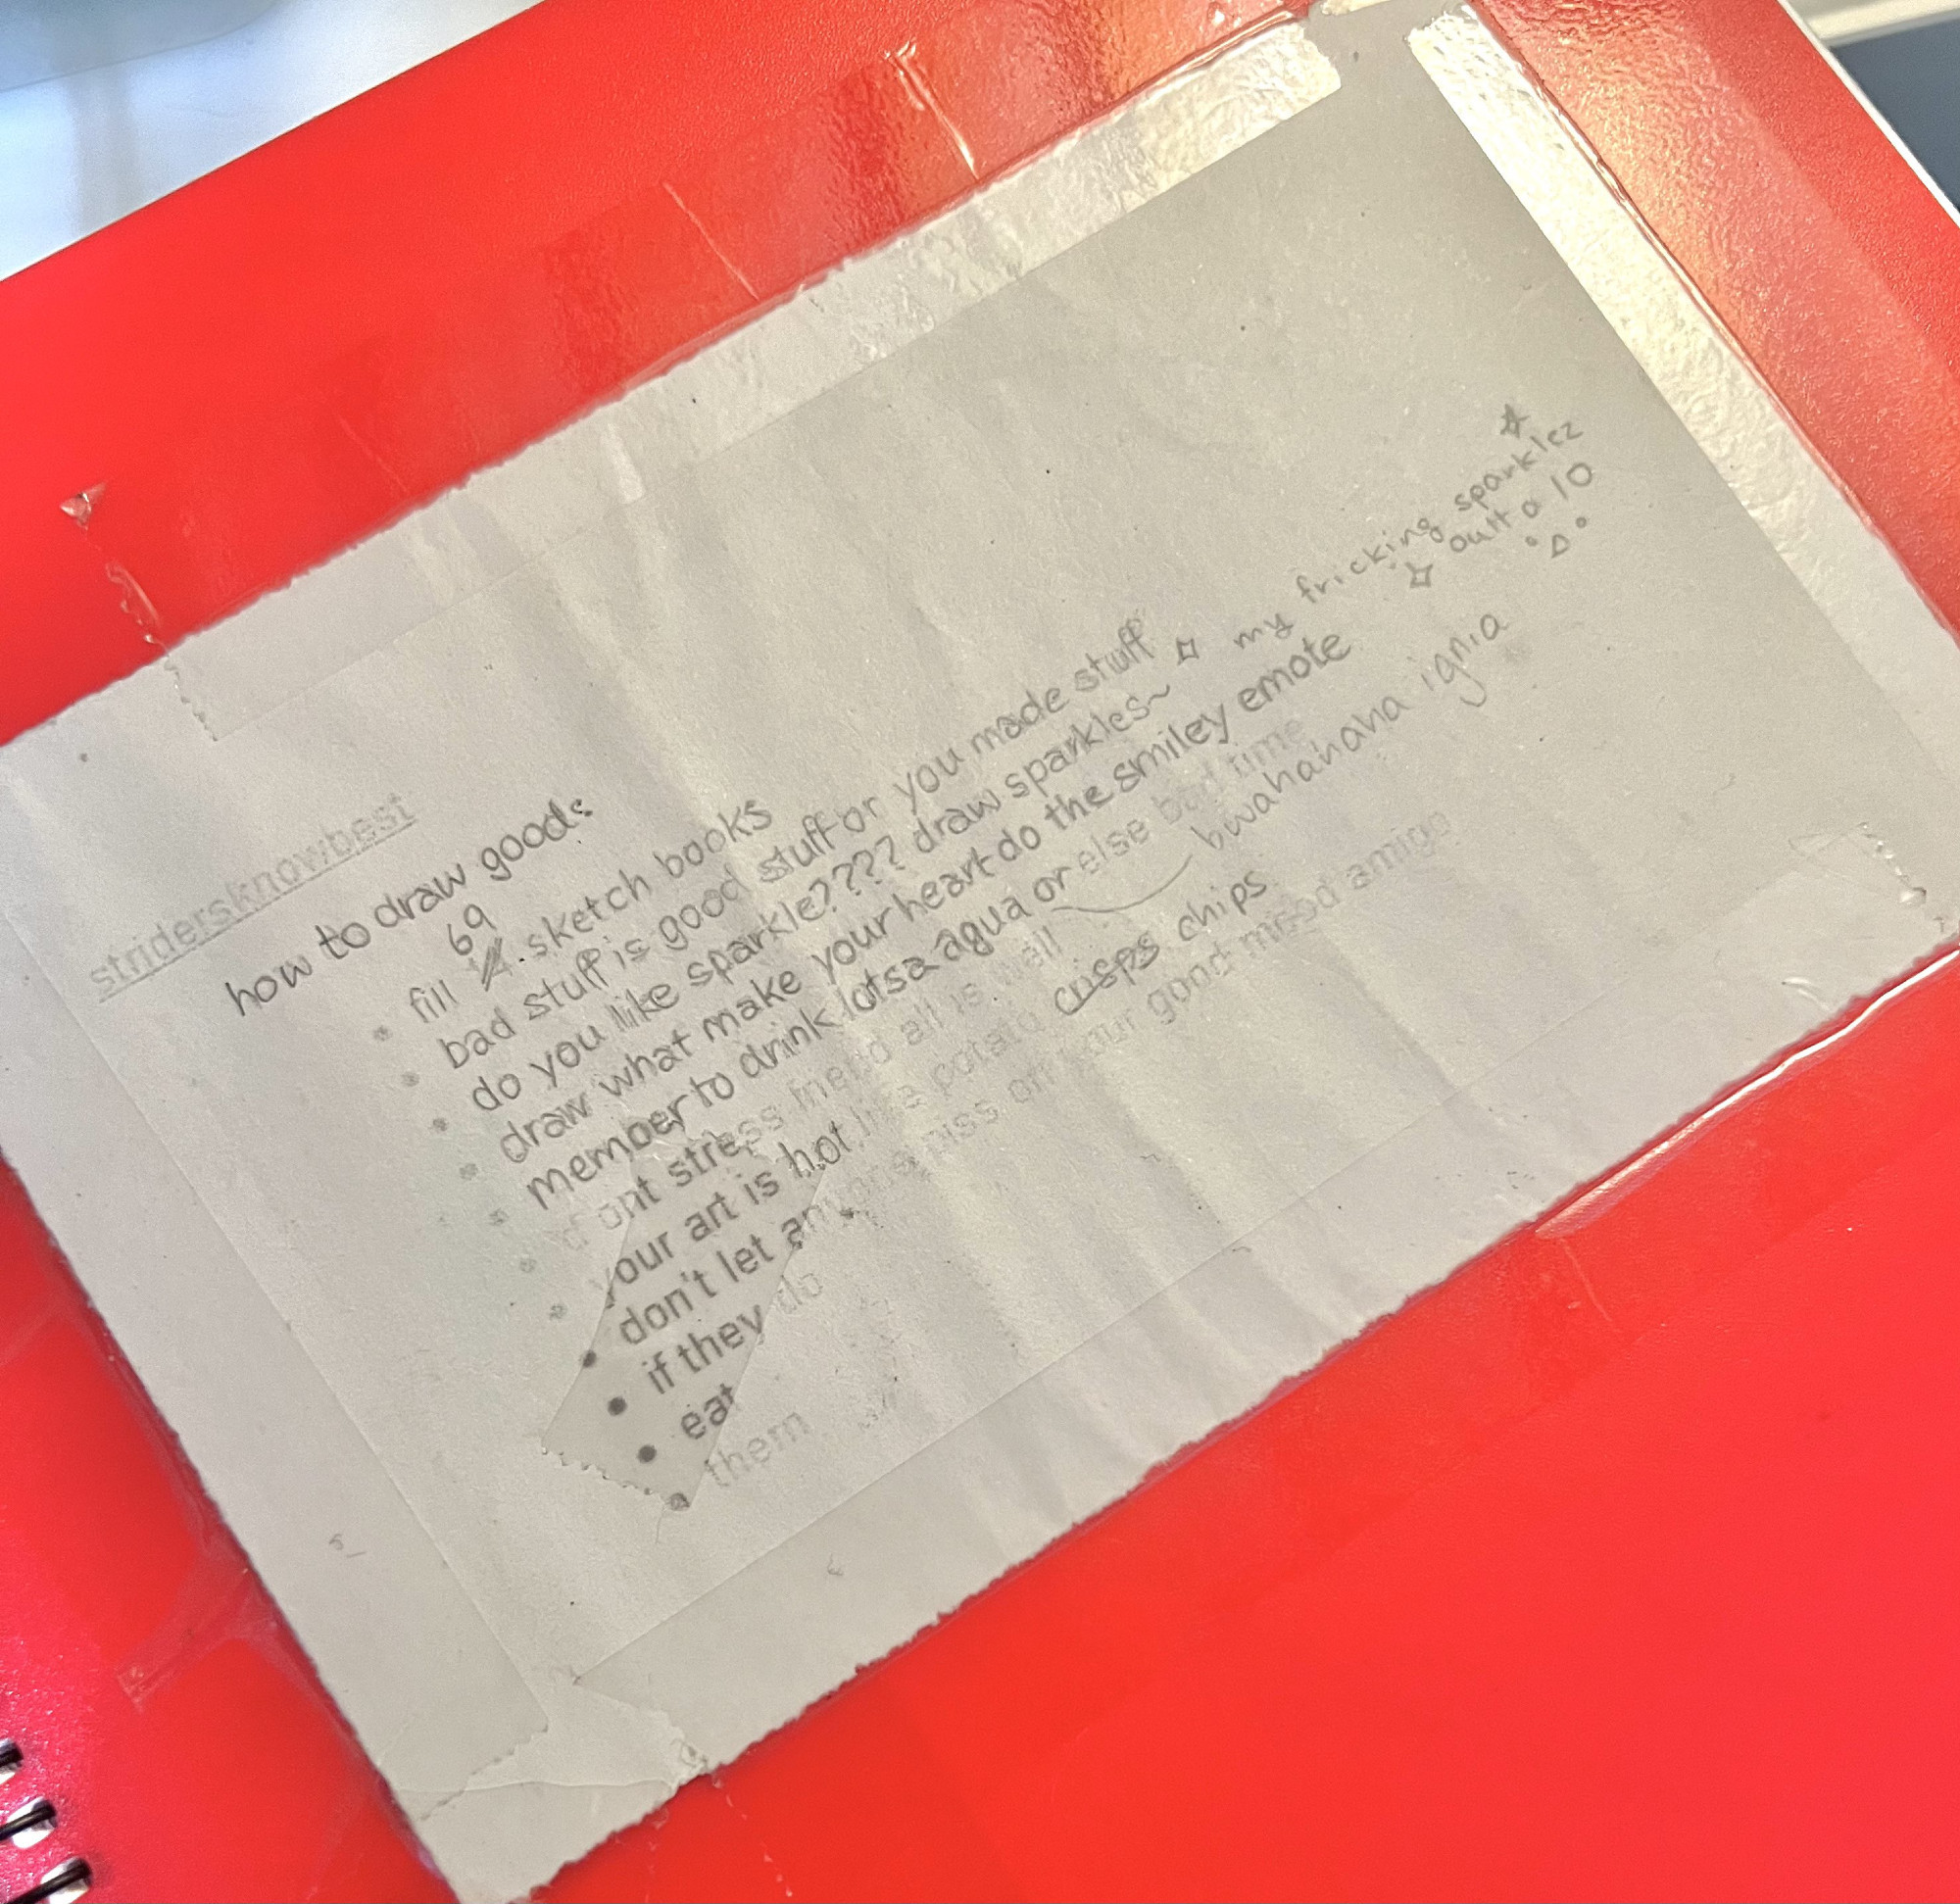 stridersknowbest
how to draw good:
69
• fill sketch books
• bad stuff is good stuff or you made stuff
• do you like sparkle???? draw sparkles~
my fricking sparklez
outt a 10
• draw what make your heart do the smiley emote
• member to drink lotsa agua or else bad time
bwahahahaha ignia
• dont stress friend all is well
• your art is hot like potato crisps chips
• don't let anyone piss on your good mood amigo
• if they do
• eat
• them